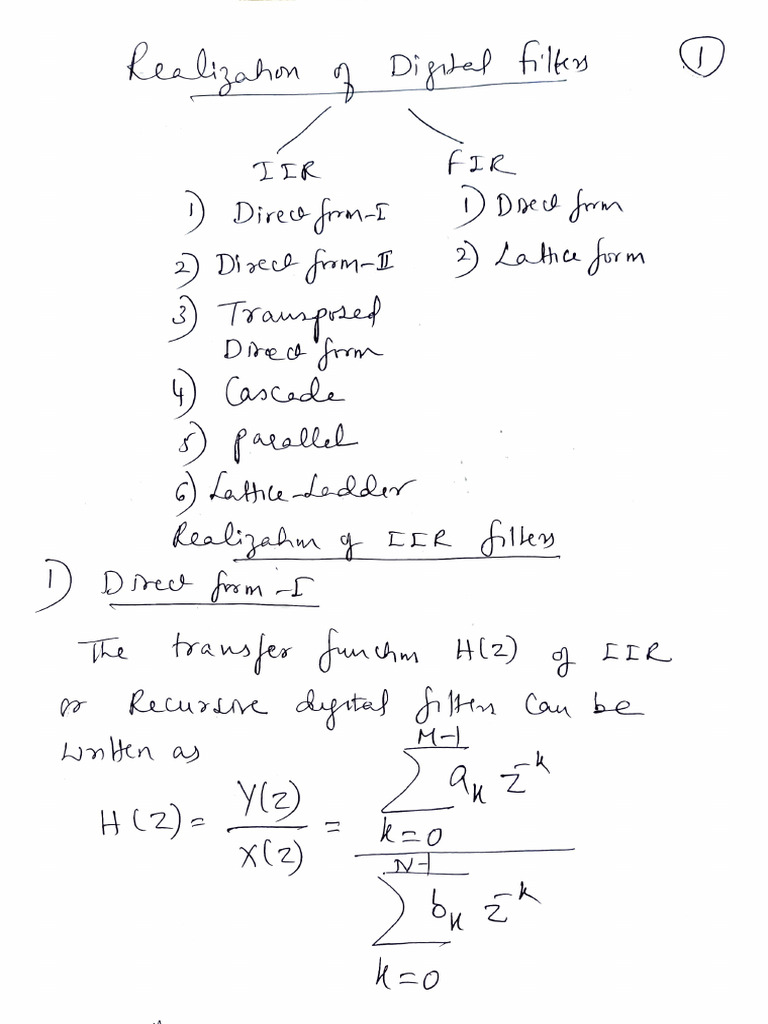 Realization of Digital filters
1
IIR
FIR
1) Direct form-I
1) Direct form
2) Direct form-II
2) Lattice form
3) Transposed
Direct form
4) Cascade
5) parallel
6) Lattice-Ladder
Realization of IIR filters
1) Direct form-I
The transfer function H(z) of IIR
or Recursive digital filters can be
written as
H(z) = Y(z)/X(z) = \frac{\sum_{k=0}^{M-1} a_k z^{-k}}{\sum_{k=0}^{N-1} b_k z^{-k}}